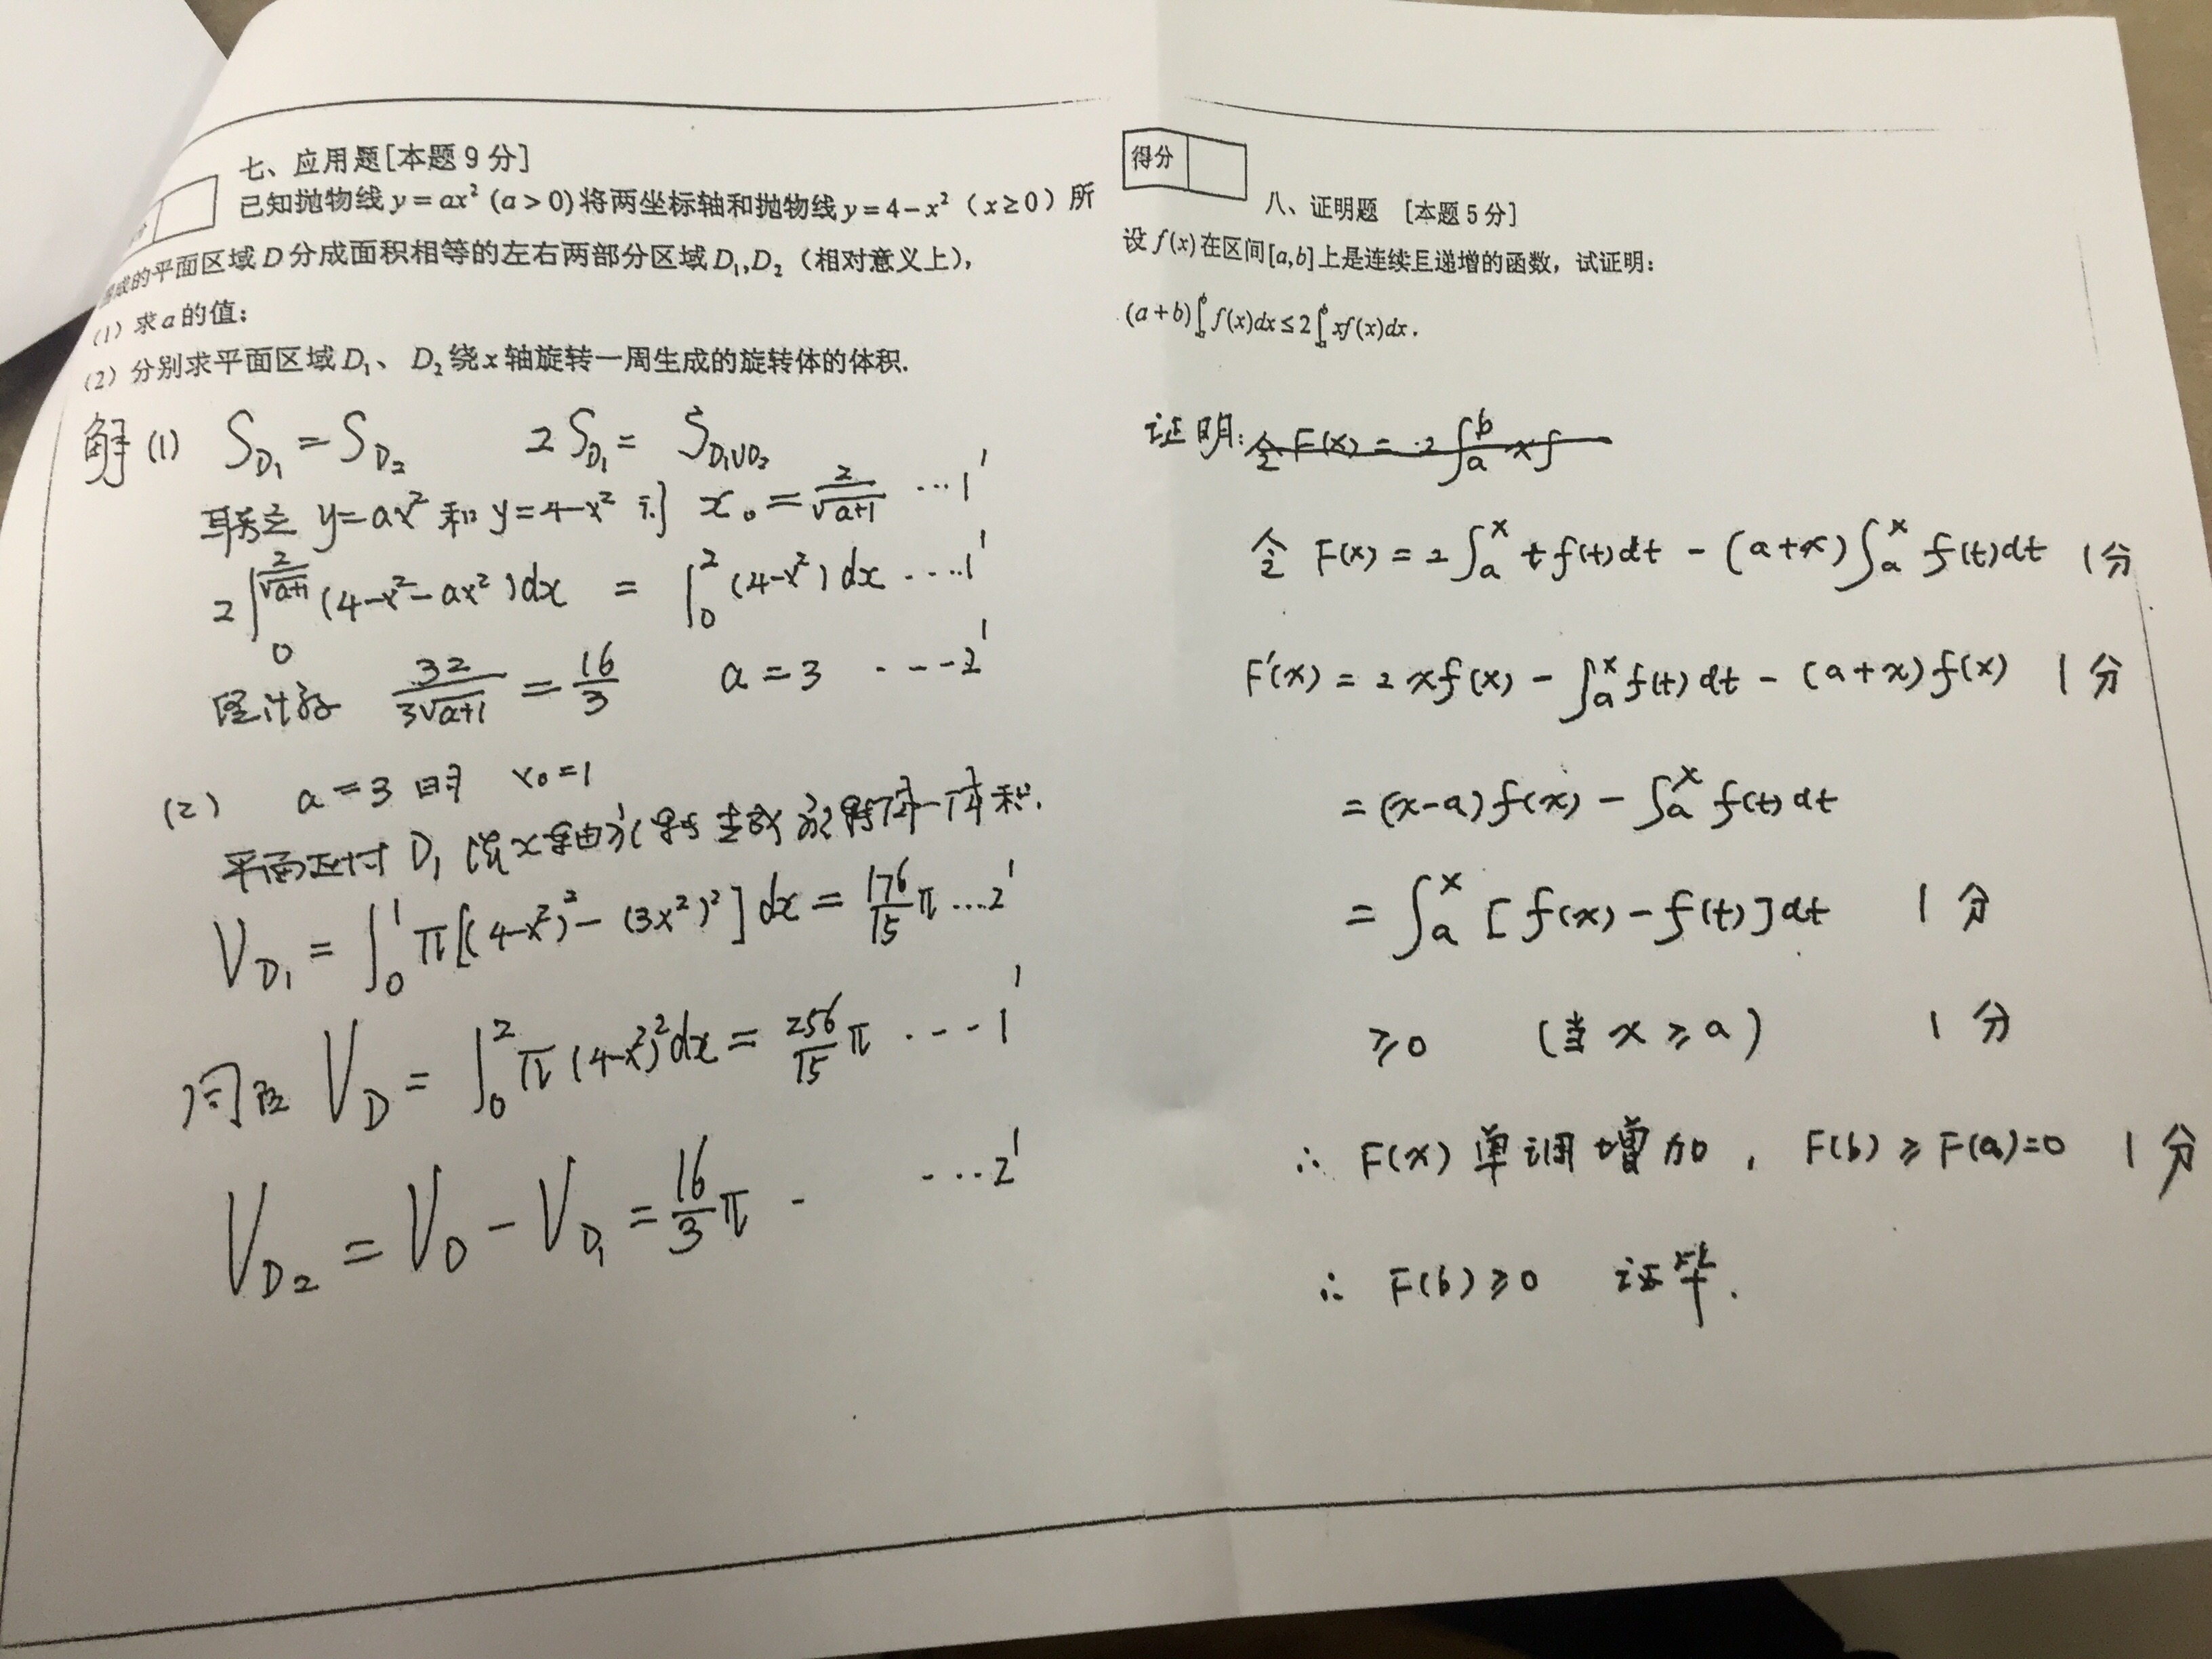 七、应用题[本题9分]
已知抛物线 y = ax² (a > 0) 将两坐标轴和抛物线 y = 4 − x² (x ≥ 0) 所
成的平面区域 D 分成面积相等的左右两部分区域 D₁, D₂ (相对意义上),
(1) 求 a 的值;
(2) 分别求平面区域 D₁、 D₂ 绕 x 轴旋转一周生成的旋转体的体积.
解 (1) S_{D₁} = S_{D₂} 2S_{D₁} = S_{D₁∪D₂}
联立 y=ax² 和 y=4−x² 得 x₀ = 2/√(a+1) ...1'
2∫₀^{2/√(a+1)} (4−x²−ax²)dx = ∫₀² (4−x²)dx ....1'
32/(3√(a+1)) = 16/3 a=3 ---2'
(2) a=3时 x₀=1
平面区域 D₁ 绕x轴旋转生成旋转体体积.
V_{D₁} = ∫₀¹ π[(4−x²)² − (3x²)²]dx = 176/15 π ...2'
同理 V_D = ∫₀² π(4−x²)²dx = 256/15 π ---1'
V_{D₂} = V_D − V_{D₁} = 16/3 π - ...2'
得分
八、证明题 [本题5分]
设 f(x) 在区间[a,b]上是连续且递增的函数，试证明：
(a+b)∫ₐᵇ f(x)dx ≤ 2∫ₐᵇ xf(x)dx.
证明: 令 F(x) = 2∫ₐᵇ xf
令 F(x) = 2∫ₐˣ tf(t)dt − (a+x)∫ₐˣ f(t)dt 1分
F'(x) = 2xf(x) − ∫ₐˣ f(t)dt − (a+x)f(x) 1分
= (x−a)f(x) − ∫ₐˣ f(t)dt
= ∫ₐˣ [f(x)−f(t)]dt 1分
≥0 (当 x≥a) 1分
∴ F(x) 单调增加, F(b) ≥ F(a)=0 1分
∴ F(b) ≥0 证毕.